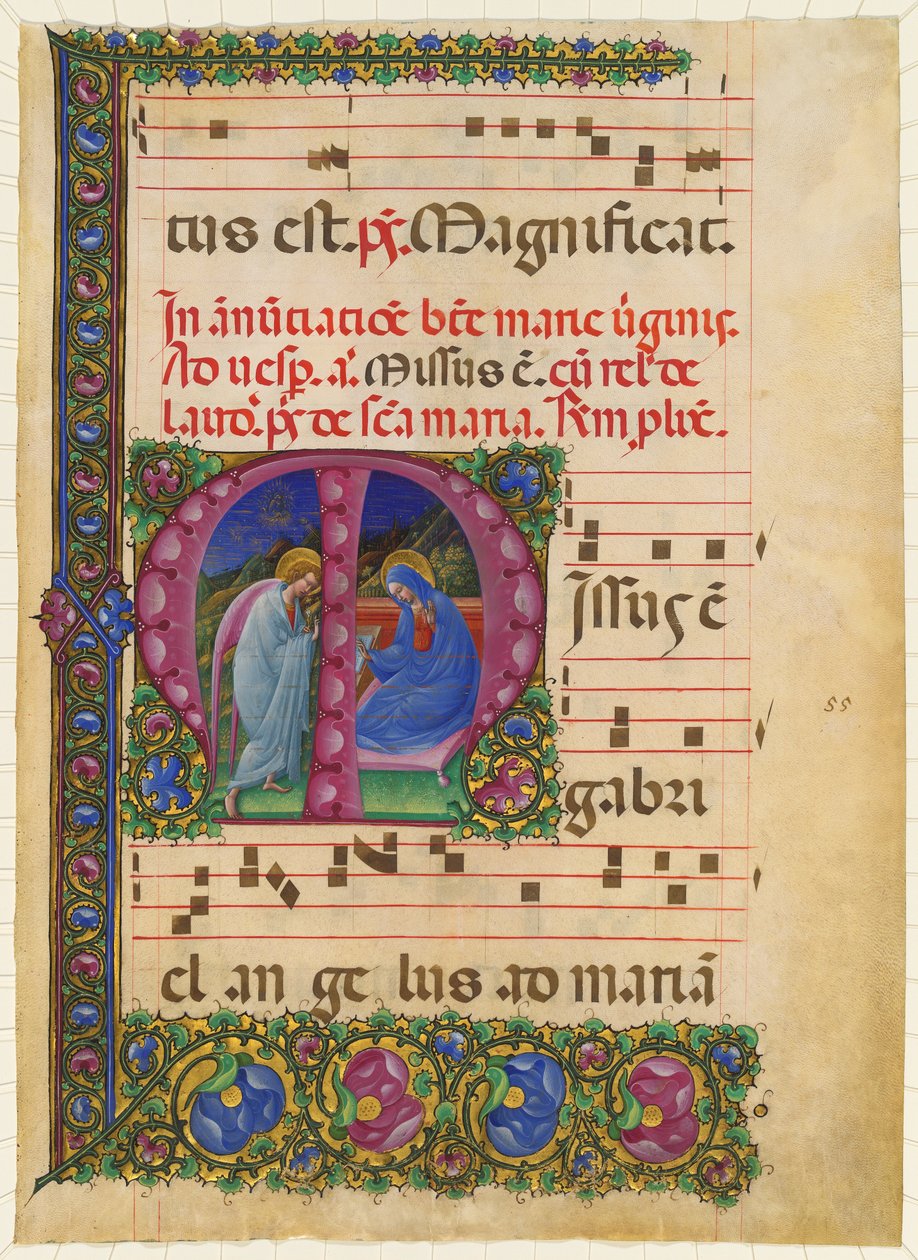 tus est. ps̄. Magnificat.
In ānūtiatiōe btē marie v̄ginis.
Ad uesp̄. a. Missus ē. cū rel' de
laud'. ps̄ de sc̄a maria.
Missus ē
55
gabri
el an ge lus ad mariā